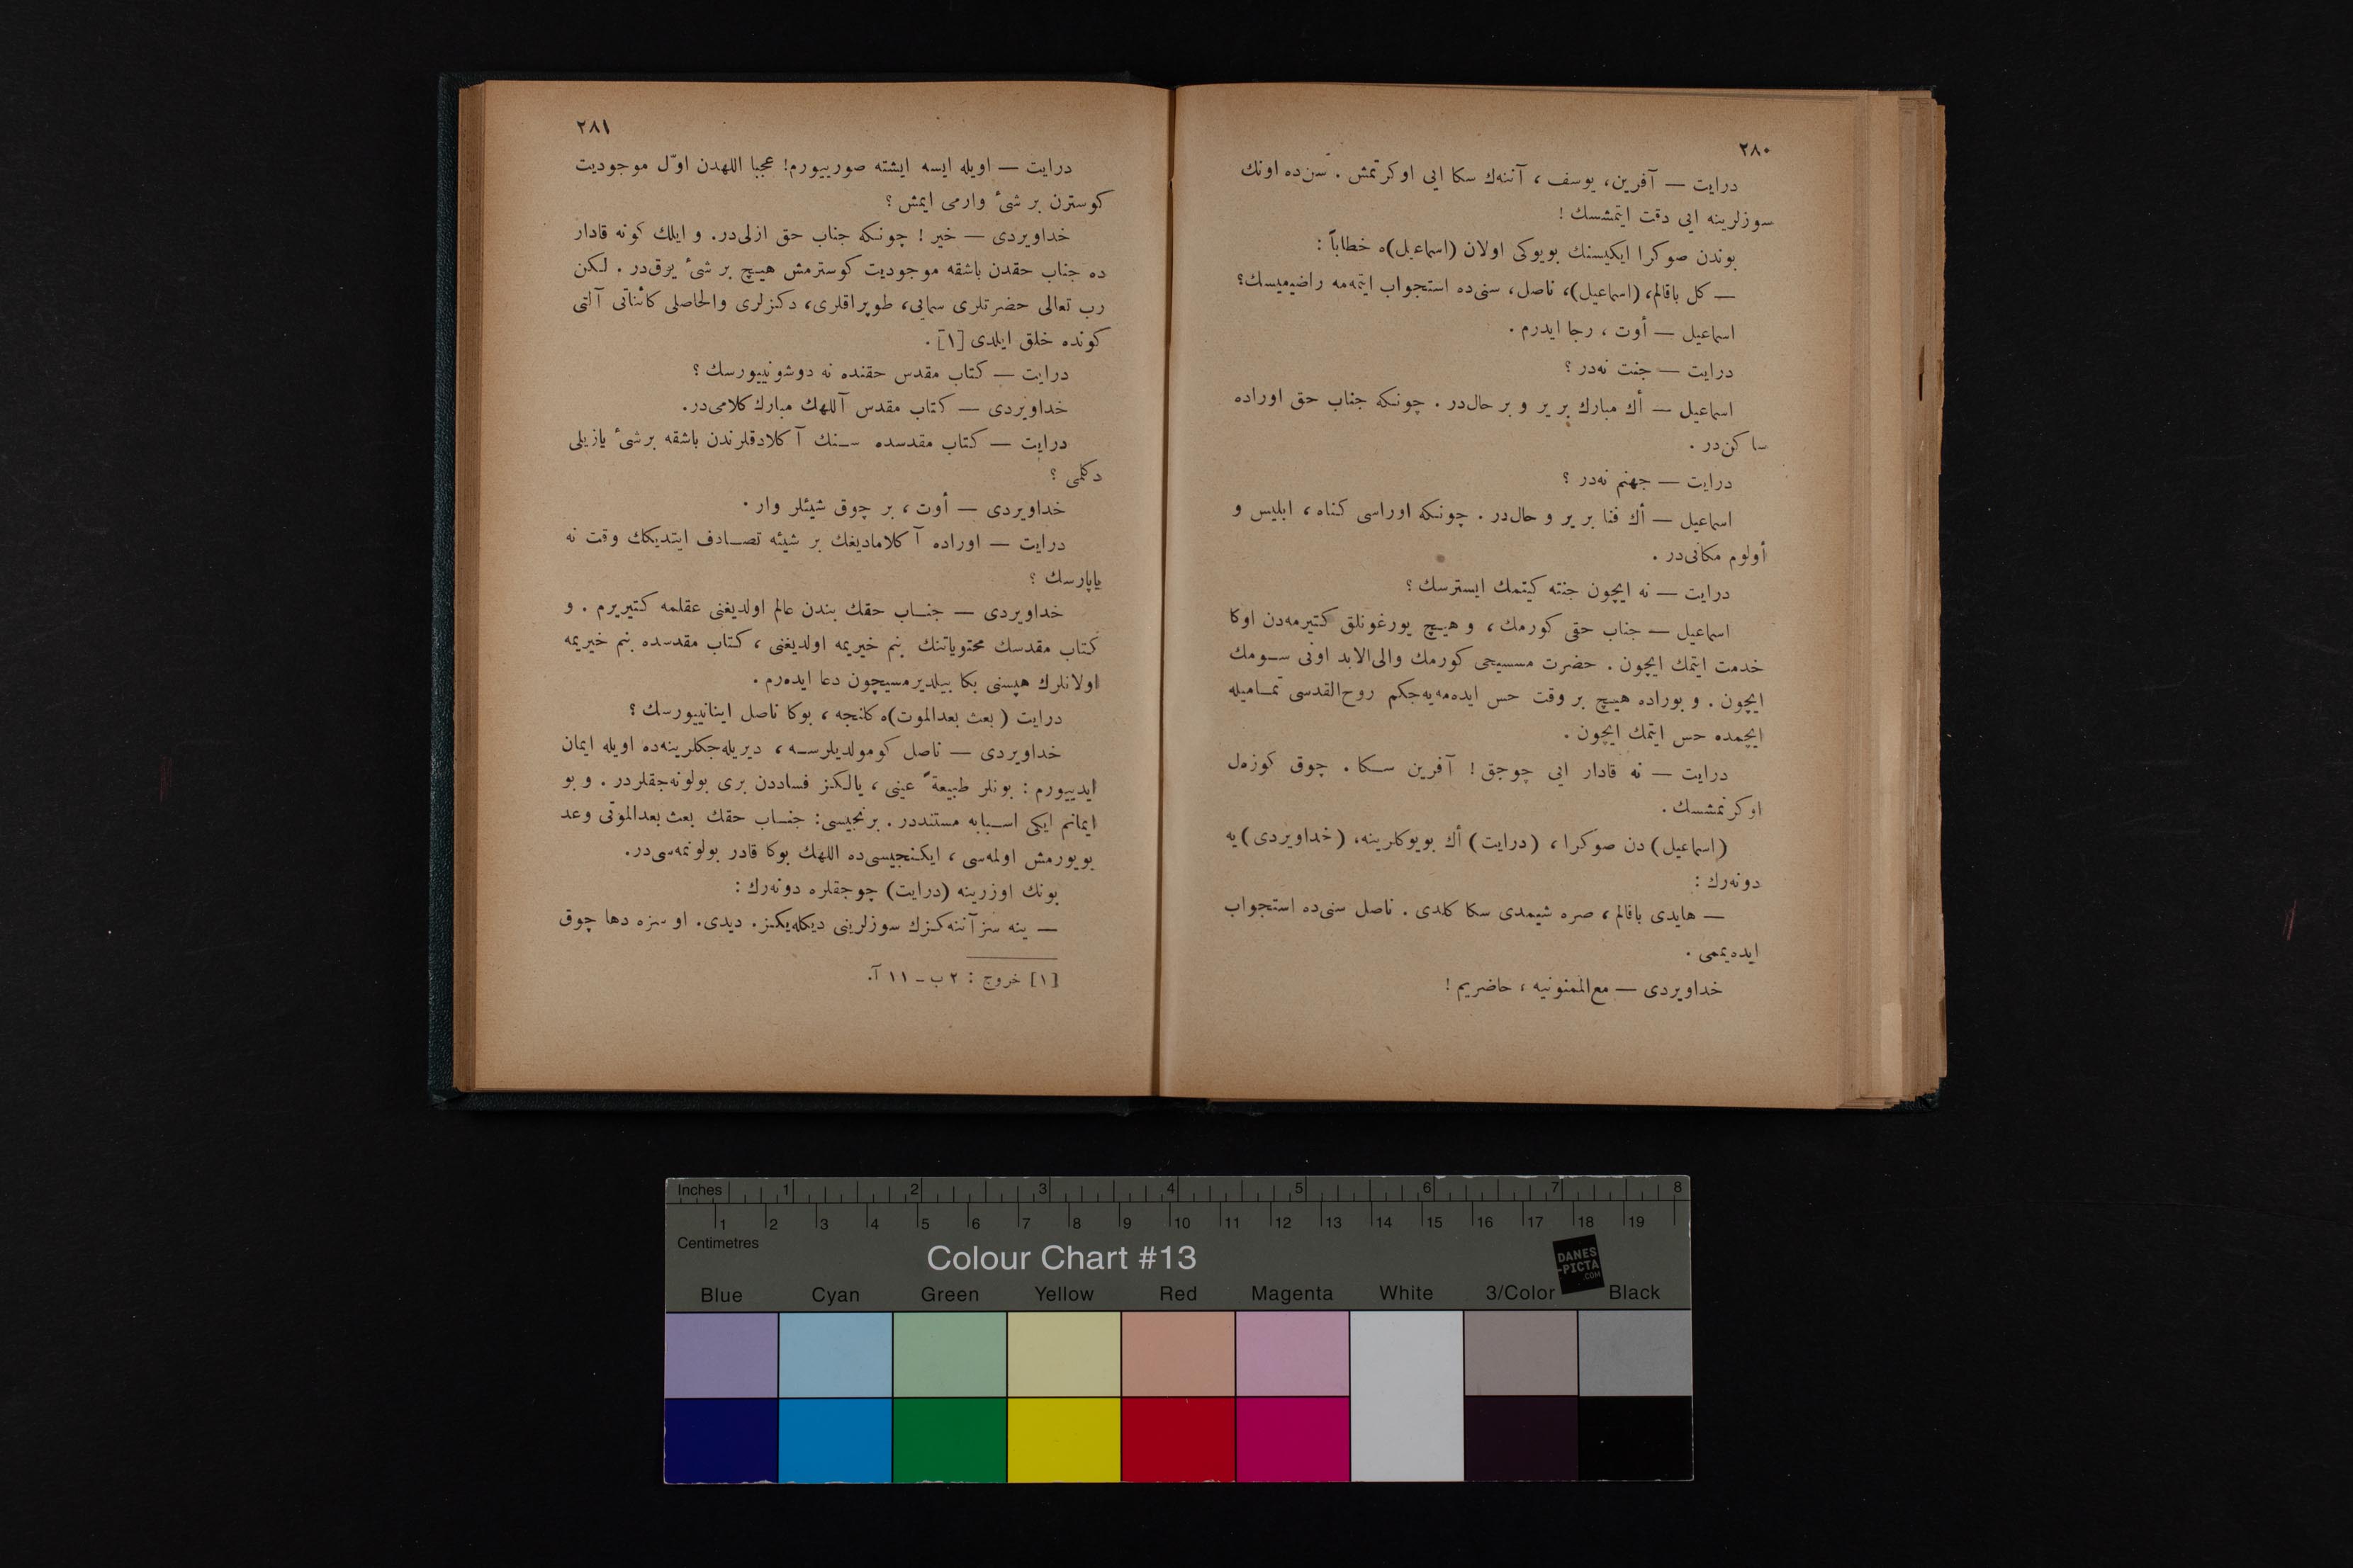 ٢٨٠
درايت — آفرين، يوسف ، آننه‌ك سكا ايی اوكرتمش . سن‌ده اونك
سوزلرينه ايی دقت ايتمشسك !
بوندن صوكرا ايكيسنك بويوكی اولان (اسماعيل)ه خطاباً :
— كل باقالم، (اسماعيل)، ناصل، سنی‌ده استجواب ايتمه‌مه راضيميسك؟
اسماعيل — أوت ، رجا ايدرم .
درايت — جنت نه‌در ؟
اسماعيل — أك مبارك بر ير و بر حال‌در . چونكه جناب حق اوراده
ساكن‌در .
درايت — جهنم نه‌در ؟
اسماعيل — أك فنا بر ير و حال‌در . چونكه اوراسی كناه ، ابليس و
أولوم مكانی‌در .
درايت — نه ايچون جنته كيتمك ايسترسك ؟
اسماعيل — جناب حقی كورمك ، و هيچ يورغونلق كتيرمه‌دن اوكا
خدمت ايتمك ايچون . حضرت مسيحی كورمك والی‌الابد اونی سومك
ايچون . و بوراده هيچ بر وقت حس ايده‌مه‌يه‌جكم روح‌القدسی تماميله
ايچمده حس ايتمك ايچون .
درايت — نه قادار ايی چوجق ! آفرين سكا . چوق كوزه‌ل
اوكرنمشسك .
(اسماعيل) دن صوكرا ، (درايت) أك بويوكلرينه، (خداويردی) يه
دونه‌رك :
— هايدی باقالم ، صره شيمدی سكا كلدی . ناصل سنی‌ده استجواب
ايده‌يممی .
خداويردی — مع‌الممنونيه ، حاضريم !
٢٨١
درايت — اويله ايسه ايشته صورييورم! عجبا اللهدن اوّل موجوديت
كوسترن بر شیٔ وارمی ايمش ؟
خداويردی — خير ! چونكه جناب حق ازلی‌در. و ايلك كونه قادار
ده جناب حقدن باشقه موجوديت كوسترمش هيچ بر شیٔ يوق‌در . لكن
رب تعالی حضرتلری سمايی، طوپراقلری، دكزلری والحاصلی كائناتی آلتی
كونده خلق ايلدی [١] .
درايت — كتاب مقدس حقنده نه دوشونييورسك ؟
خداويردی — كتاب مقدس آللهك مبارك كلامی‌در.
درايت — كتاب مقدسده سنك آكلادقلرندن باشقه برشیٔ يازيلی
دكلمی ؟
خداويردی — أوت ، بر چوق شيئلر وار .
درايت — اوراده آكلاماديغك بر شيئه تصادف ايتديكك وقت نه
ياپارسك ؟
خداويردی — جناب حقك بندن عالم اولديغنی عقلمه كتيريرم . و
كتاب مقدسك محتوياتنك بنم خيريمه اولديغنی ، كتاب مقدسده بنم خيريمه
اولانلرك هپسنی بكا بيلديرمسيچون دعا ايده‌رم .
درايت (بعث بعدالموت)ه كلنجه ، بوكا ناصل اينانييورسك ؟
خداويردی — ناصل كومولديلرسه ، ديريله‌جكلرينه‌ده اويله ايمان
ايدييورم : بونلر طبيعةً عينی ، يالكز فساددن بری بولونه‌جقلردر . و بو
ايمانم ايكی اسبابه مستنددر . برنجيسی: جناب حقك بعث بعدالموتی وعد
بويورمش اولمه‌سی ، ايكنجيسی‌ده اللهك بوكا قادر بولونمه‌سی‌در.
بونك اوزرينه (درايت) چوجقلره دونه‌رك :
— ينه سز آننه‌كزك سوزلرينی ديكله‌يكز. ديدی. او سزه دها چوق
[١] خروج : ٢ ب ـ ١١ آ.
Inches 1 2 3 4 5 6 7 8
1 2 3 4 5 6 7 8 9 10 11 12 13 14 15 16 17 18 19
Centimetres
Colour Chart #13
DANES
-PICTA
.COM
Blue Cyan Green Yellow Red Magenta White 3/Color Black